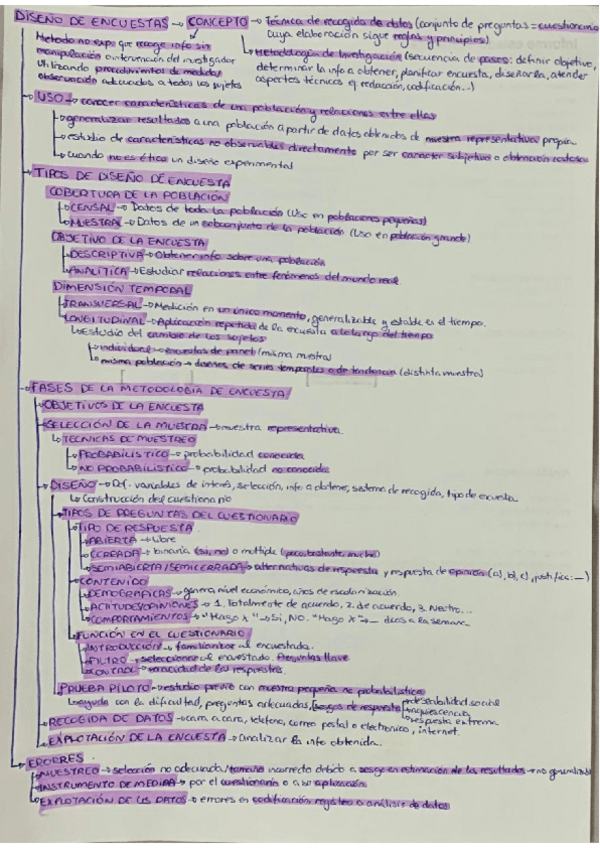 DISEÑO DE ENCUESTAS → CONCEPTO → Técnica de recogida de datos (conjunto de preguntas = cuestionario
cuya elaboración sigue reglas y principios)
Metodo no expe que recoge info sin
manipulación o intervención del investigador
Utilizando procedimientos de medidas
observación adecuados a todos los sujetos
Metodología de Investigación (secuencia de pasos: definir objetivo,
determinar la info a obtener, planificar encuesta, diseñarla, atender
aspectos técnicos y redacción, codificación...)
USO → conocer características de una población y relaciones entre ellas
generalizar resultados a una población a partir de datos obtenidos de muestra representativa propia
estudio de características no observables directamente por ser caracter subjetivo o obtención costosa
cuando no es ético un diseño experimental
TIPOS DE DISEÑO DE ENCUESTA
COBERTURA DE LA POBLACIÓN
CENSAL → Datos de toda la población (Uso en poblaciones pequeñas)
MUESTRAL → Datos de un subconjunto de la población (Uso en población grande)
OBJETIVO DE LA ENCUESTA
DESCRIPTIVA → Obtener info sobre una población
ANALÍTICA → Estudiar relaciones entre fenómenos del mundo real
DIMENSIÓN TEMPORAL
TRANSVERSAL → Medición en un único momento, generalizable y estable en el tiempo.
LONGITUDINAL → Aplicación repetida de la encuesta a lo largo del tiempo
Estudio del cambio de los sujetos
individual → encuestas de panel (misma muestra)
misma población → diseños de series temporales o de tendencias (distinta muestra)
FASES DE LA METODOLOGÍA DE ENCUESTA
OBJETIVOS DE LA ENCUESTA
SELECCIÓN DE LA MUESTRA → muestra representativa
TECNICAS DE MUESTREO
PROBABILISTICO → probabilidad conocida
NO PROBABILISTICO → probabilidad no conocida
DISEÑO → Def. variables de interés, selección, info a obtener, sistema de recogida, tipo de encuesta.
Construcción del cuestionario
TIPOS DE PREGUNTAS DEL CUESTIONARIO
TIPO DE RESPUESTA
ABIERTA → libre
CERRADA → binaria (si, no) o multiple (poco, bastante, mucho)
SEMIABIERTA/SEMICERRADA → alternativas de respuesta y respuesta de opinión (a), b), c), justifica: —)
CONTENIDO
DEMOGRAFICAS → genero, nivel económico, años de escolarización
ACTITUDES/OPINIONES → 1. Totalmente de acuerdo, 2. de acuerdo, 3. Neutro...
COMPORTAMIENTOS → "Hago x" → Si, NO. "Hago x" → — dias a la semana
FUNCIÓN EN EL CUESTIONARIO
INTRODUCCIÓN → familiarizar al encuestado.
FILTRO → seleccionar al encuestado. Preguntas llave
CONTROL → veracidad de las respuestas.
PRUEBA PILOTO → estudio previo con muestra pequeña no probabilistica
ayuda con la dificultad, preguntas adecuadas, sesgos de respuesta
deseabilidad social
aquiescencia
respuesta extrema
RECOGIDA DE DATOS → cara a cara, telefono, correo postal o electronico, internet.
EXPLOTACIÓN DE LA ENCUESTA → analizar la info obtenida.
ERRORES
MUESTREO → selección no adecuada/tamaño incorrecto debido a sesgo en estimación de los resultados → no generalizable
INSTRUMENTO DE MEDIDA → por el cuestionario o a su aplicación
EXPLOTACIÓN DE LOS DATOS → errores en codificación registro o análisis de datos